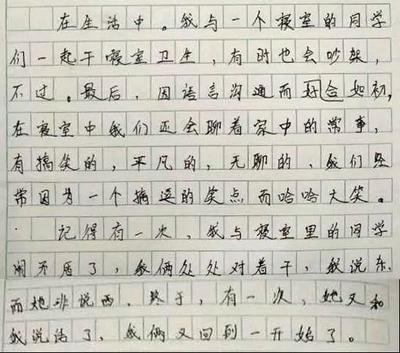 在生活中。我与一个寝室的同学
们一起干寝室卫生，有时也会吵架，
不过。最后，因语言沟通而好会如初，
在寝室中我们还会聊着家中的常事，
有搞笑的，平凡的，无聊的、我们经
常因为一个搞逗的笑点而哈哈大笑。
记得有一次、我与寝室里的同学
闹矛盾了，我俩处处对着干，我说东，
而她非说西。终于，有一次，她又和
我说话了，我俩又回到一开始了。